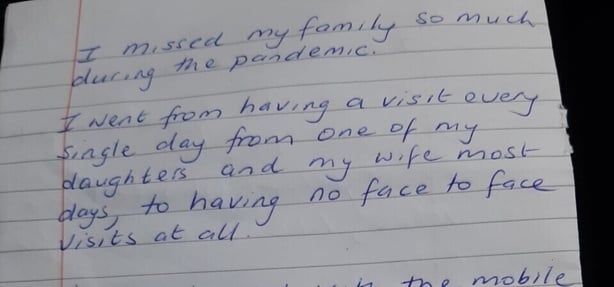 I missed my family so much
during the pandemic.
I went from having a visit every
single day from one of my
daughters and my wife most
days, to having no face to face
visits at all.
the mobile